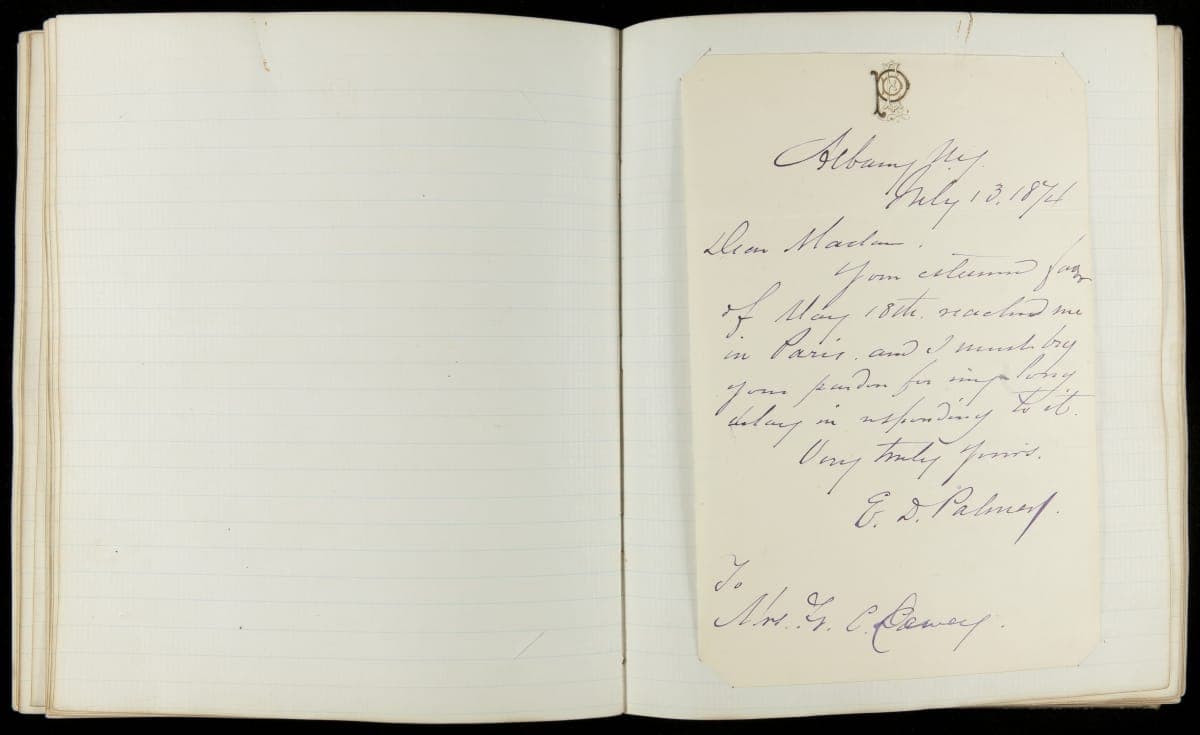 Albany N.Y.
July 13, 1874
Dear Madam.
Your esteemed favor
of May 18th. reached me
in Paris. and I must beg
your pardon for my long
delay in responding to it.
Very truly yours.
E. D. Palmer.
To
Mrs. F. C.